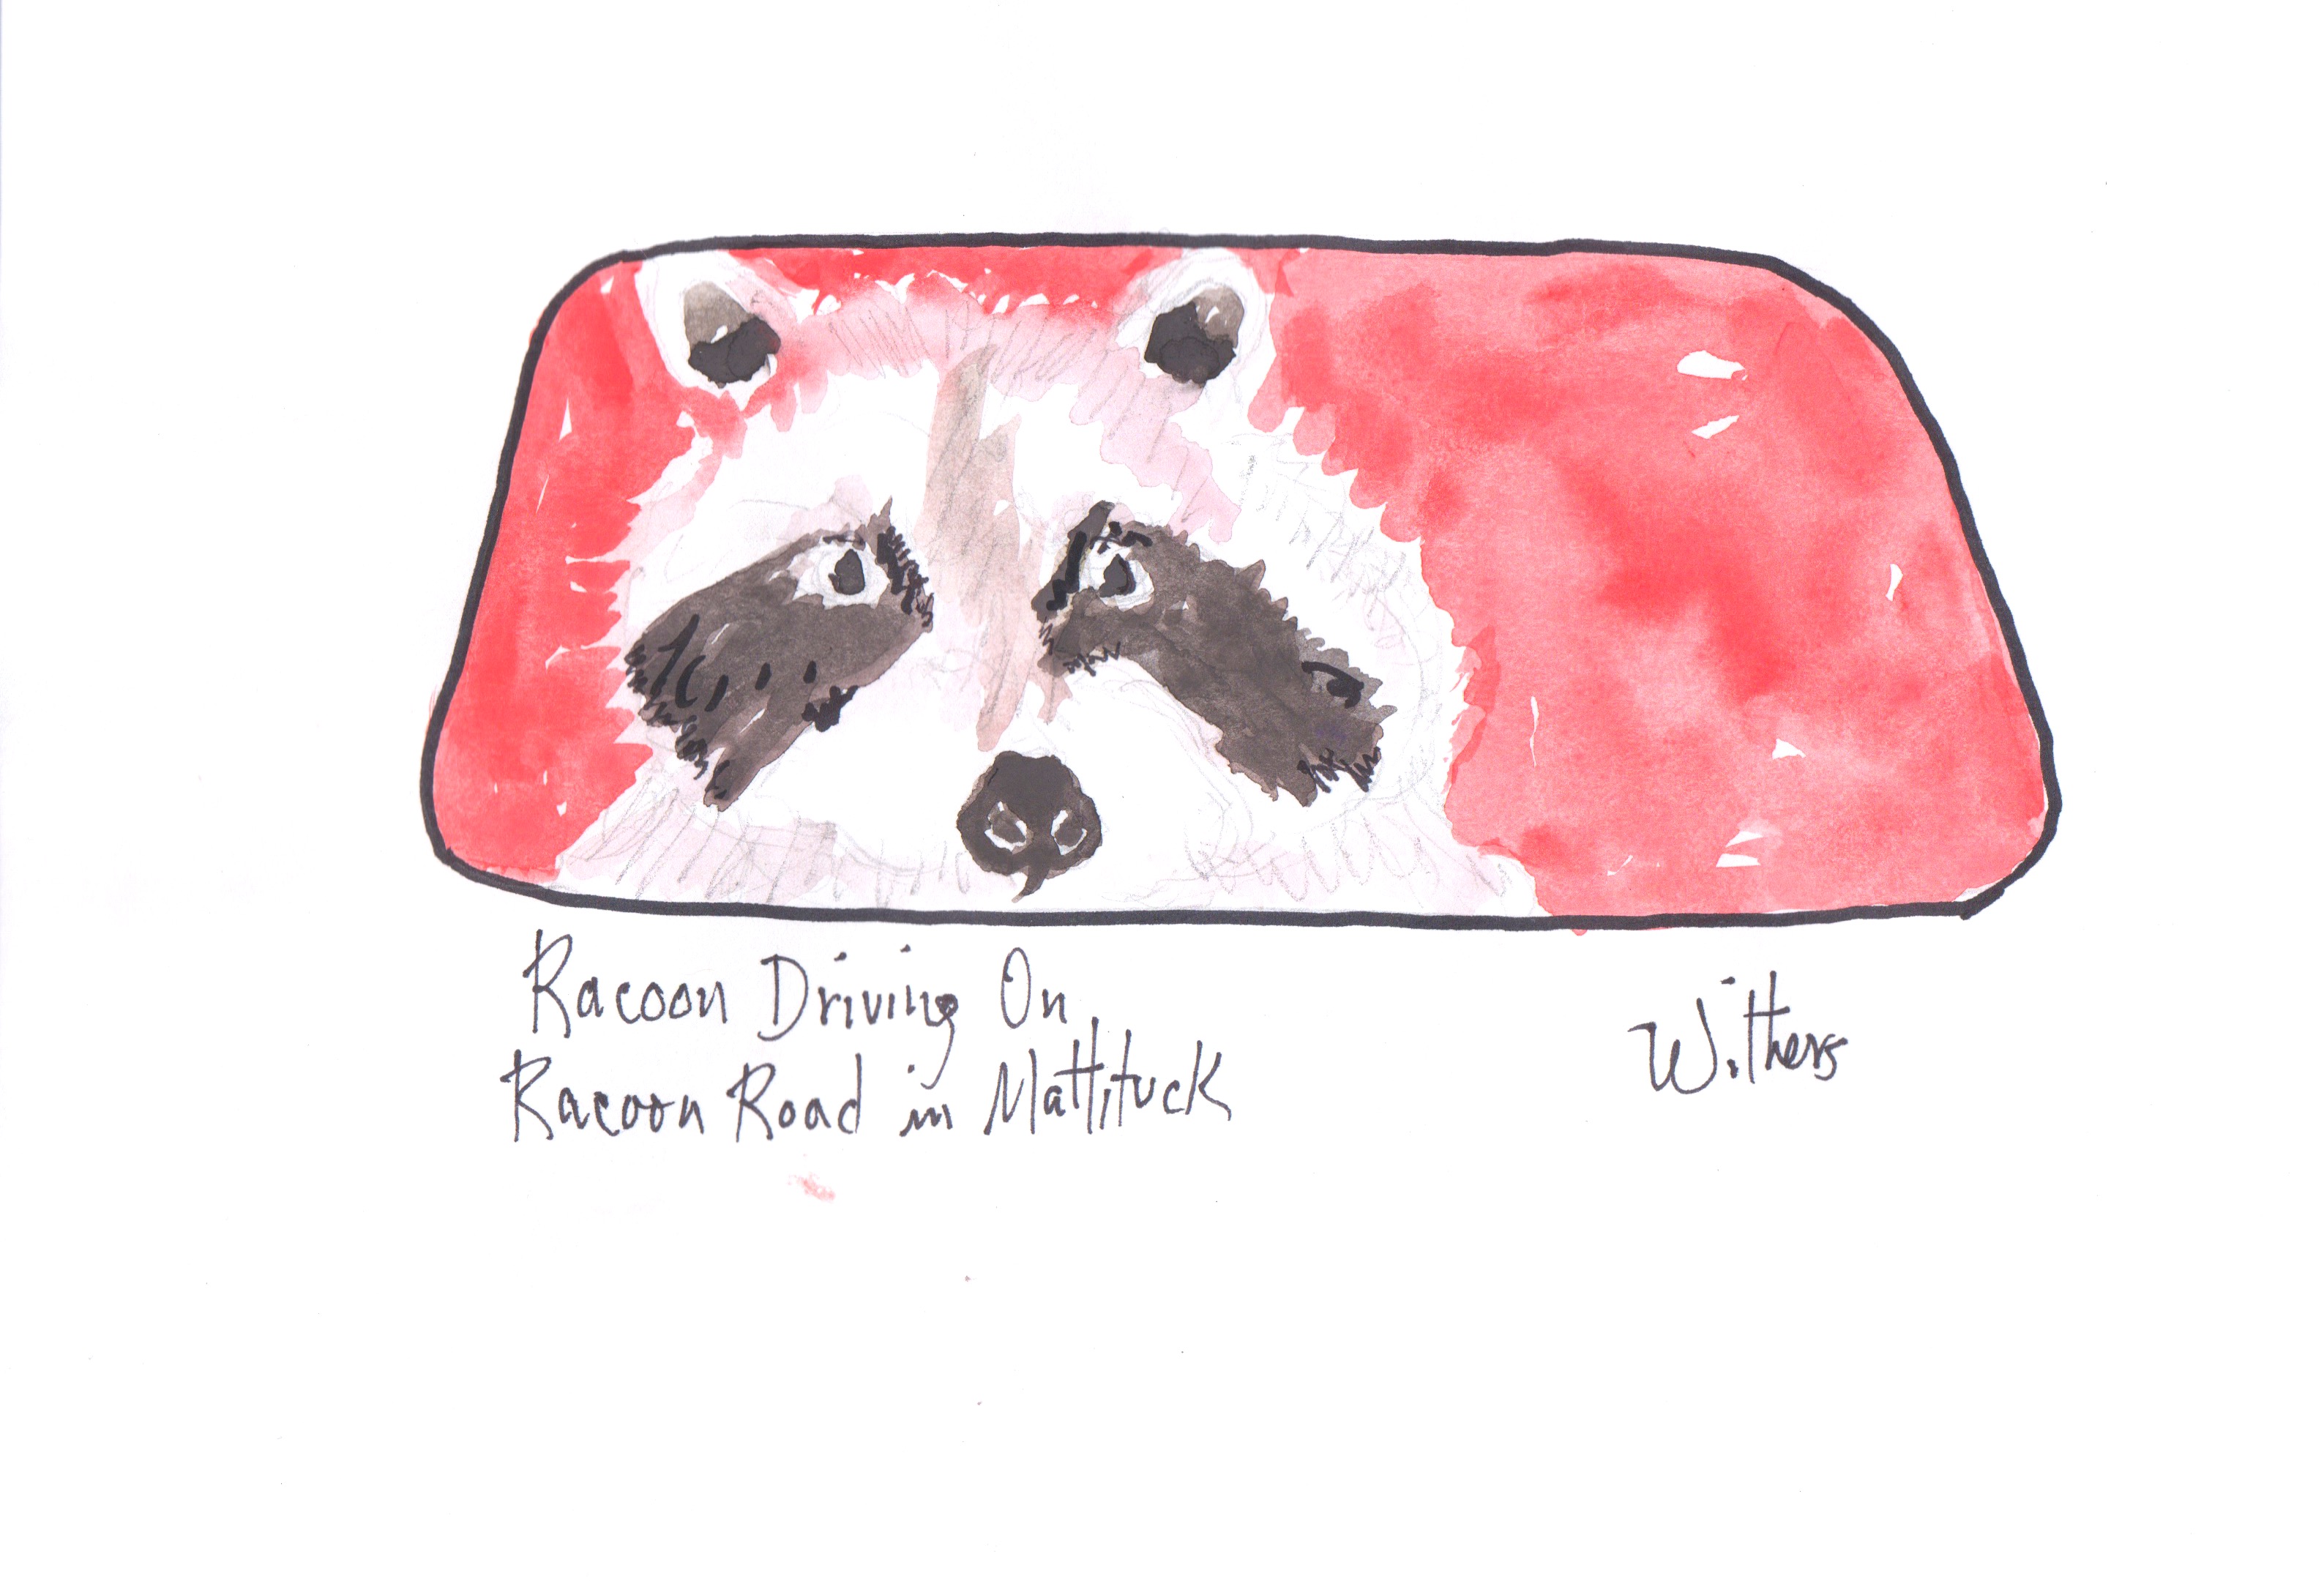 Racoon Driving On
Racoon Road in Mattituck
Withers